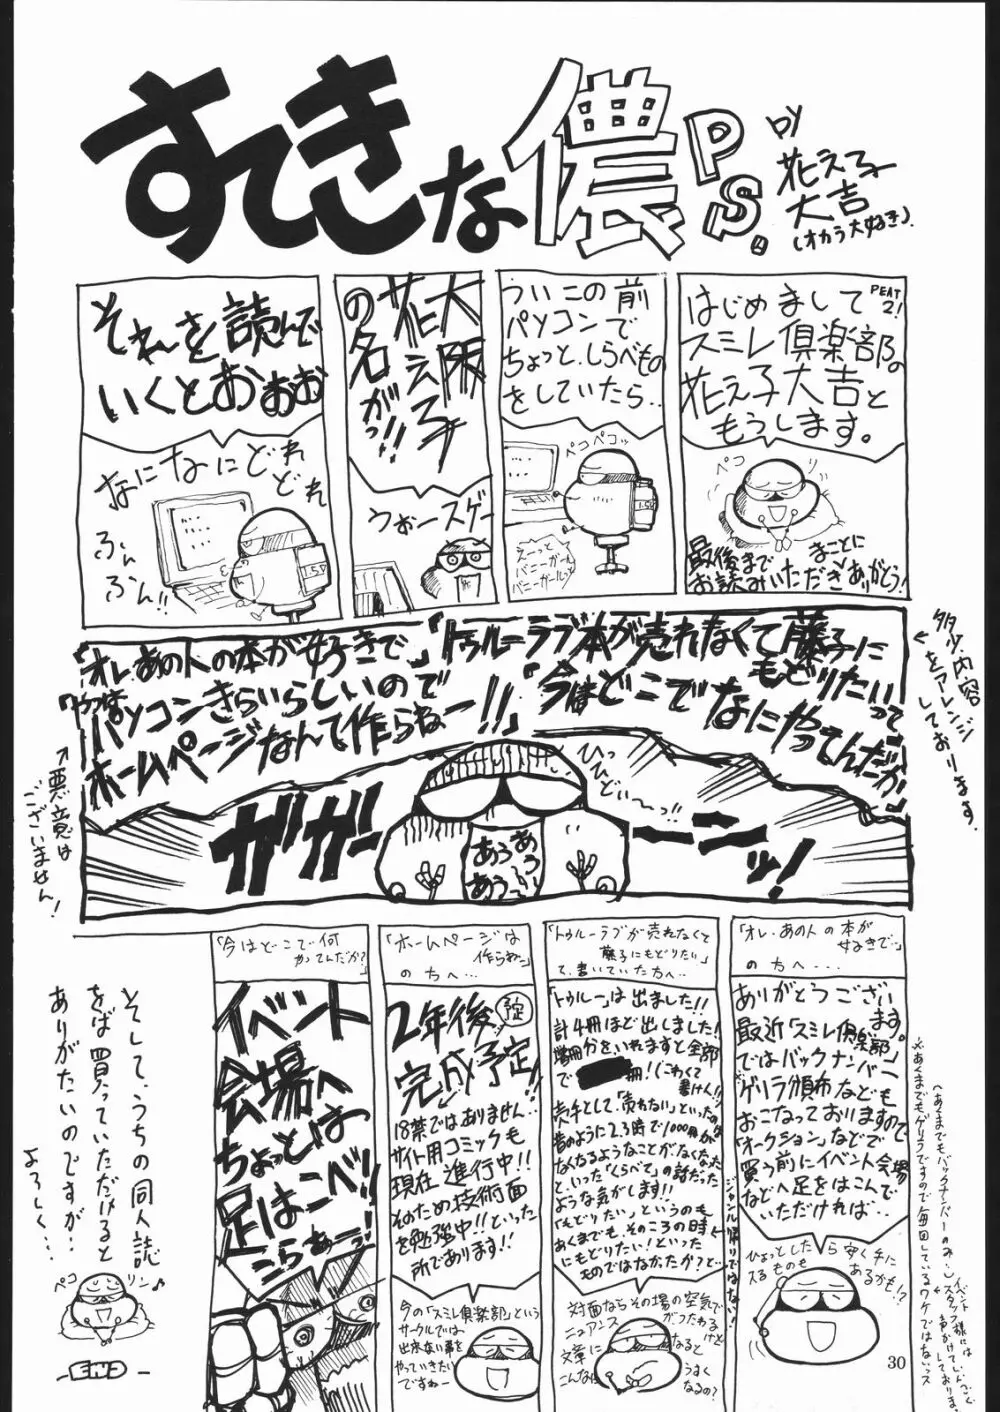 すてきな儂P.S.
by
花え子
大吉
(オカラ大好き).
PEAT
2!
はじめまして
スミレ倶楽部の
花え子大吉と
もうします。
ペコ
リ
最後まで
お読みいただき
まことに
ありがとう!
ういこの前
パソコンで
ちょっと、しらべもの
をしていたら..
ペコペコッ
えーっと
バニーガール
バニーガールと
大阪
花え子
の名が!!
うぉースゲー
それを読んで
いくとおぉぉ
なになにどれ
どれ
ふん
ふん!!
「トゥルーラブ本が売れなくて藤子に
もどりたいって」
「今はどこでなにやってんだか」
「オレあの人の本が好きで」
パソコンきらいらしいので
ホームページなんて作らねー!!」
多少内容
をアレンジ
しております。
↑悪意は
ございません!
ガガーーンッ!
ひっ
ひどい〜っ!!
あう
あう
「オレ、あの人の本が
好きで…」
の方へ....
ありがとうございます。
最近「スミレ倶楽部」
ではバックナンバー
ゲリラ頒布なども
おこなっておりますので
「オークション」などで
買う前にイベント会場
などへ足をはこんで
いただければ…
ひょっとしたら安く手に
入るものも
あるかも!?
「トゥルーラブが売れなくて
藤子にもどりたい」
て、書いていた方へ..
「トゥルー」は出ました!!
計4冊ほど出しました!
増刷分をいれますと全部
で
冊!(こわくて
書けん!!)
売手として、「売れない」といったのは
昔のように2,3時で1000冊が
なくなるようなことがなくなった
といった「くらべて」の話だった
ような気がします!!
「もどりたい」というのも
あくまでも、そのころの時
にもどりたい!といった
ものではなかったか?と…
ジャンル帰りではない!
対面ならその場の空気で
ニュアンス
がつたわる
けど
文章に
なると
こんなに
うまく
なるの?
「ホームページは
作らねー」
の方へ…
2年後
予定
完成予定
18禁ではありません..
サイト用コミックも
現在進行中!!
そのため技術面
を勉強中!!といった
所であります!!
今の「スミレ倶楽部」という
サークルでは
出来ない事を
やっていきたい
ですねー
「今はどこで何
やってんだか?」
イベント
会場へ
ちょっとは
足はこべ!!
こらぁーっ!
そして、うちの同人誌
をば買っていただけると
ありがたいのですが…
よろしく…
ペコ
リン♪
-END-
30